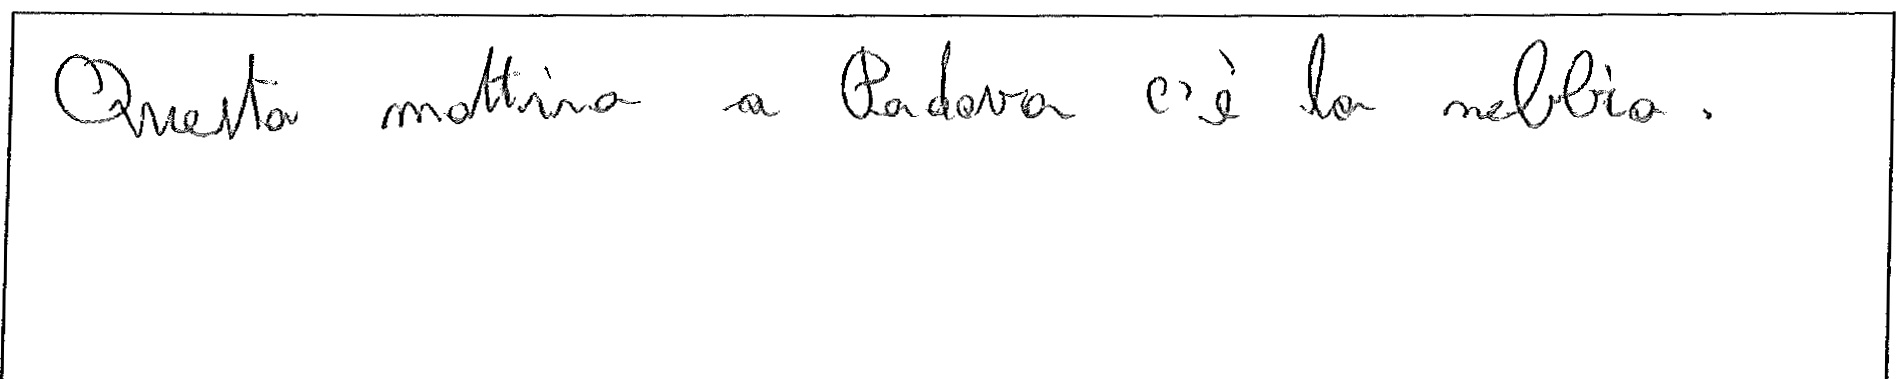 Questa mattina a Padova c'è la nebbia.